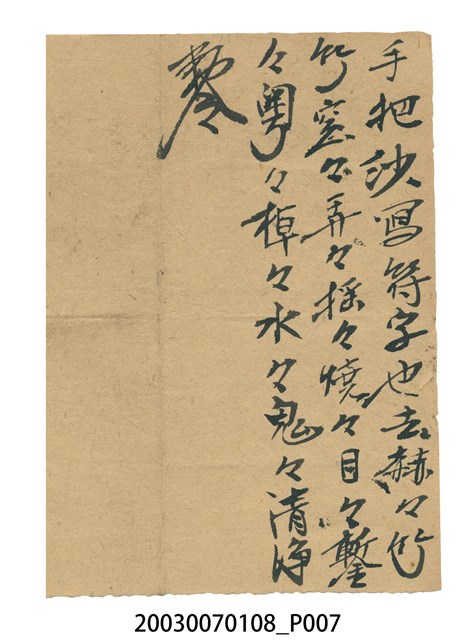 手把沙寫符字也去赫々竹
竹窓々弄々摇々燒々目々鏨
々粤々棹々水々鬼々清净
20030070108_P007